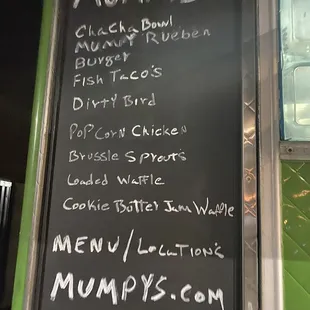 MUMPYS
ChaCha Bowl
Mumpy Rueben
Burger
Fish Taco's
Dirty Bird
Popcorn Chicken
Brussle Sprouts
Loaded Waffle
Cookie Butter Jam Waffle
MENU/Location's
MUMPYS.com